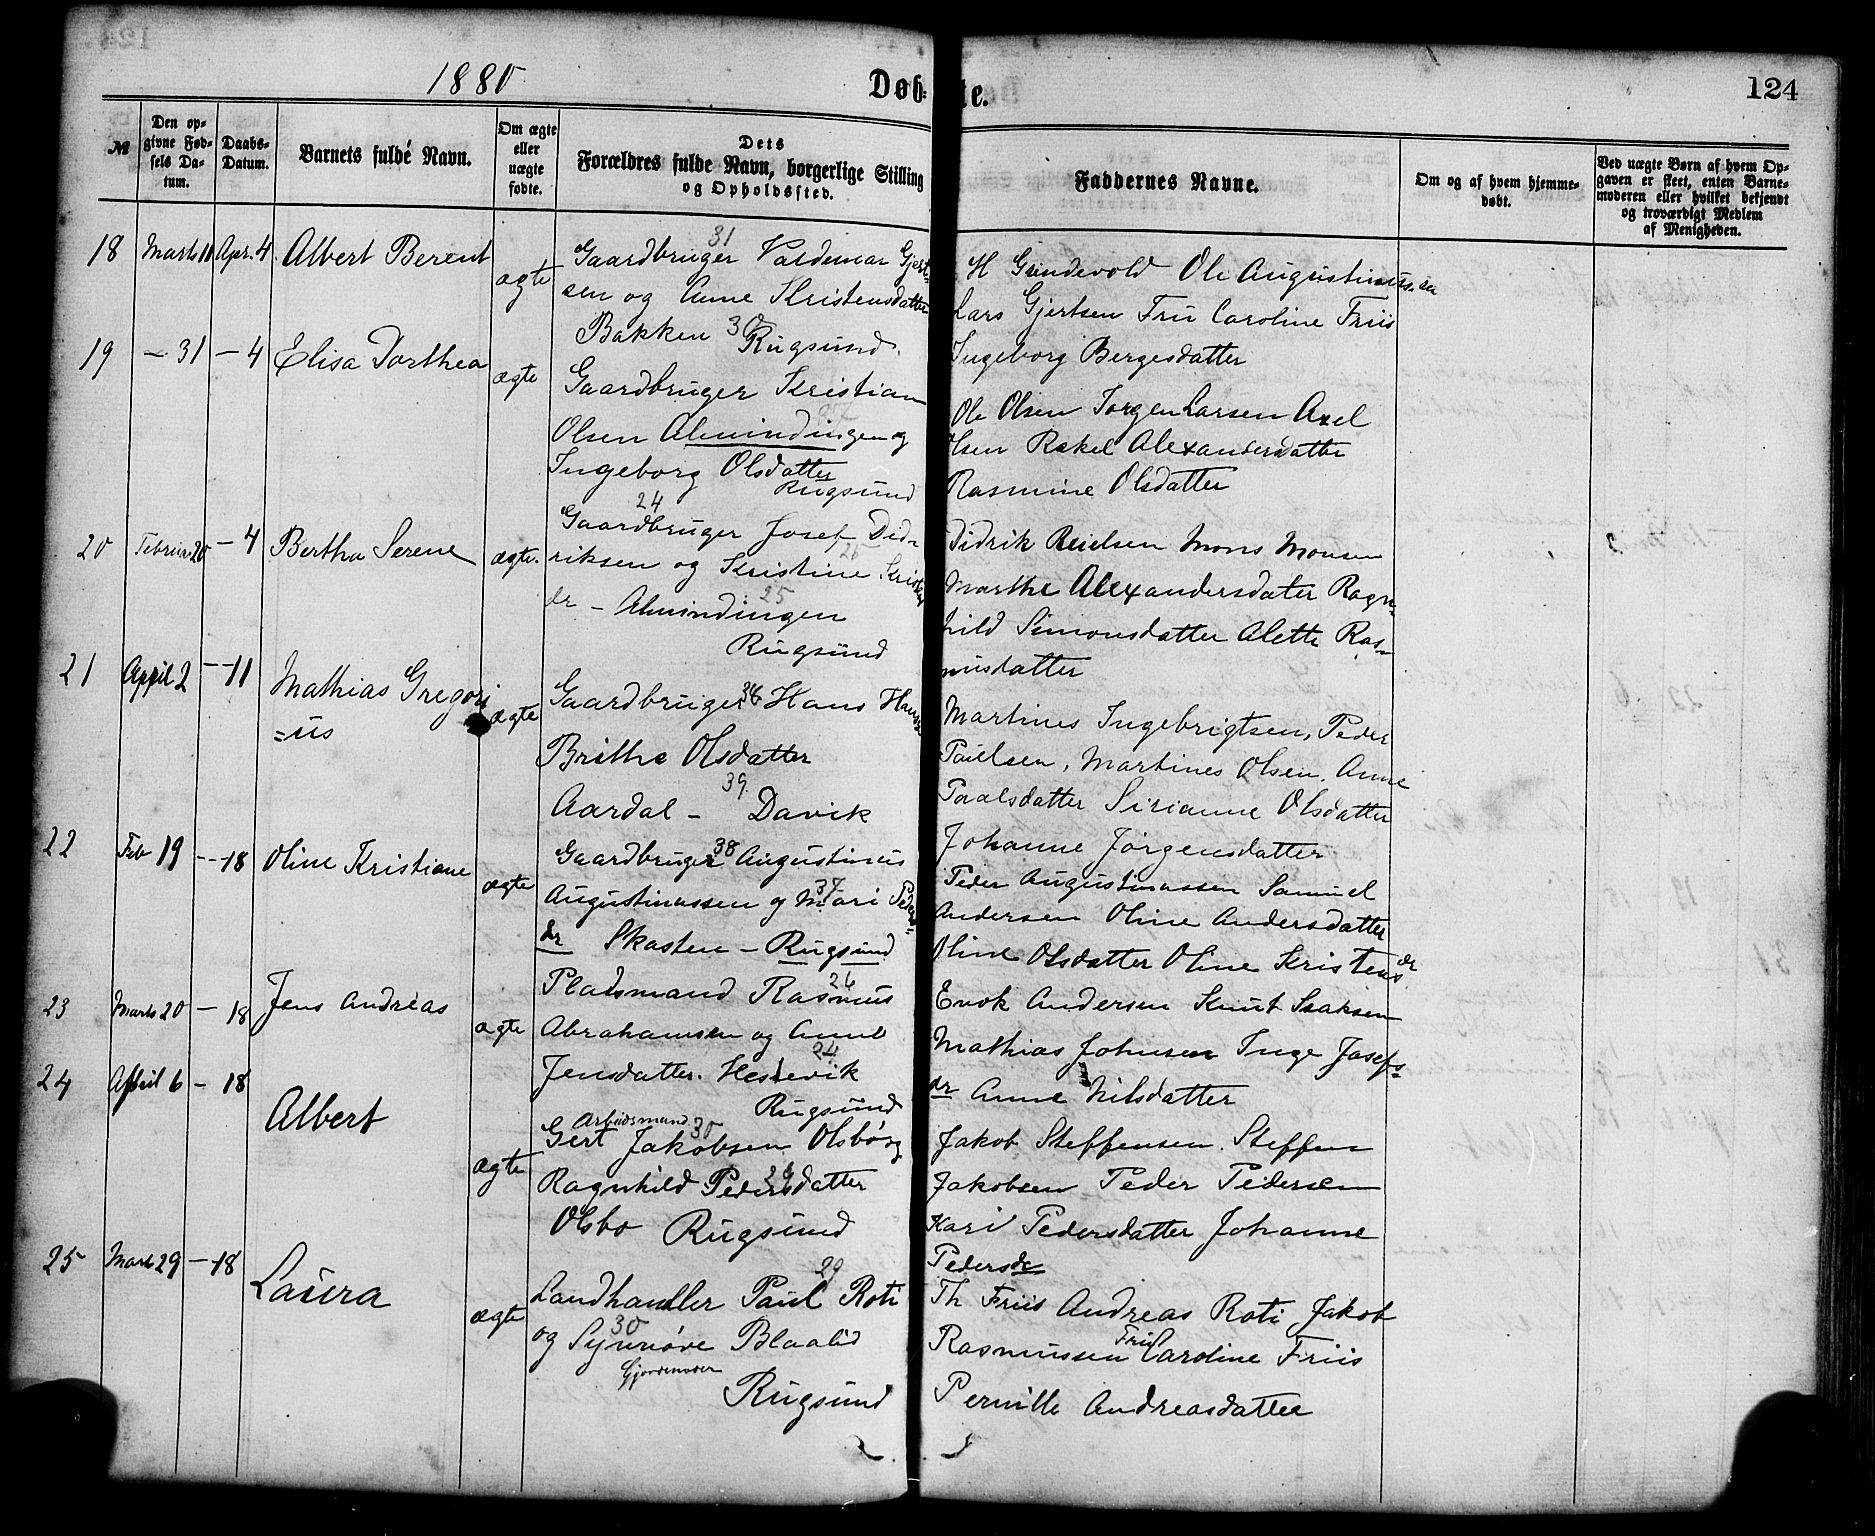 1880
Døb-
te.
124
№
Den op-
givne Fød-
sels Da-
tum.
Daabs-
Datum.
Barnets fulde Navn.
Om ægte
eller
uægte
fødte.
Dets
Forældres fulde Navn, borgerlige Stilling
og Opholdssted.
Faddernes Navne.
Om og af hvem hjemme-
døbt.
Ved uægte Børn af hvem Op-
gaven er skeet, enten Barne-
moderen eller hvilket bekjendt
og troværdigt Medlem
af Menigheden.
18 Marts 11 Apr. 4 Albert Berent ægte
31
Gaardbruger Valdemar Gjert-
sen og Anne Kristensdatter
Bakken 30 Rugsund.
H Grindevold Ole Augustinussen
Lars Gjertsen Fru Caroline Friis
Ingeborg Bergesdatter
19 – 31 – 4 Elisa Dorthea ægte
Gaardbruger Kristian
Olsen Almindingen og
Ingeborg Olsdatter
Rugsund
Ole Olsen Jørgen Larsen Axel
Olsen Rakel Alexandersdatter
Rasmine Olsdatter
20 Februar 20 – 4 Bertha Serene ægte.
24
Gaardbruger Josef Did-
riksen og Kristine
dr – Almindingen
25
Rugsund
Didrik Reielsen Mons Monsen
Marthe Alexandersdater Ragn-
hild Simonsdatter Alette Ras-
musdatter
21 April 2 – 11 Mathias Gregori
=us
ægte
Gaardbruger Hans Hansen
Brithe Olsdatter
39.
Aardal – Davik
Martines Ingebrigtsen, Peder
Paulsen, Martines Olsen. Anne
Paalsdatter Sirianne Olsdatter
Johanne Jørgensdatter
22 Feb 19 – 18 Oline Kristiane ægte
Gaardbruger 38 Augustinus
Augustinussen og Mari Peders-
dr Skasten – Rugsund
Peder Augustinussen Samuel
Andersen Oline Andersdatter
Oline Olsdatter Oline Kristensdr
23 Marts 20 – 18 Jens Andreas ægte
Pladsmand Rasmus
26
Abrahamsen og Anne
Jensdatter. Hestevik
24
Rugsund
Enok Andersen Knut Isaksen
Mathias Johnsen Inge Josefs-
dr Anne Nilsdatter
24 April 6 – 18
Albert
ægte
Arbeidsmand
Gert Jakobsen Olsbø og
30
Ragnhild Pedersdatter
Olsbo Rugsund
Jakob Steffensen. Steffen
Jakobsen Peder Pedersen
Kari Pedersdatter Johanne
Pedersdr
25 Marts 29 – 18
Laura
ægte
29
Landhandler Paul Roti
og Synnøve Blaalid
30
Gjordemoder
Rugsund
Th Friis Andreas Roti Jakob
Rasmussen Fru Caroline Friis
Pernille Andreasdatter